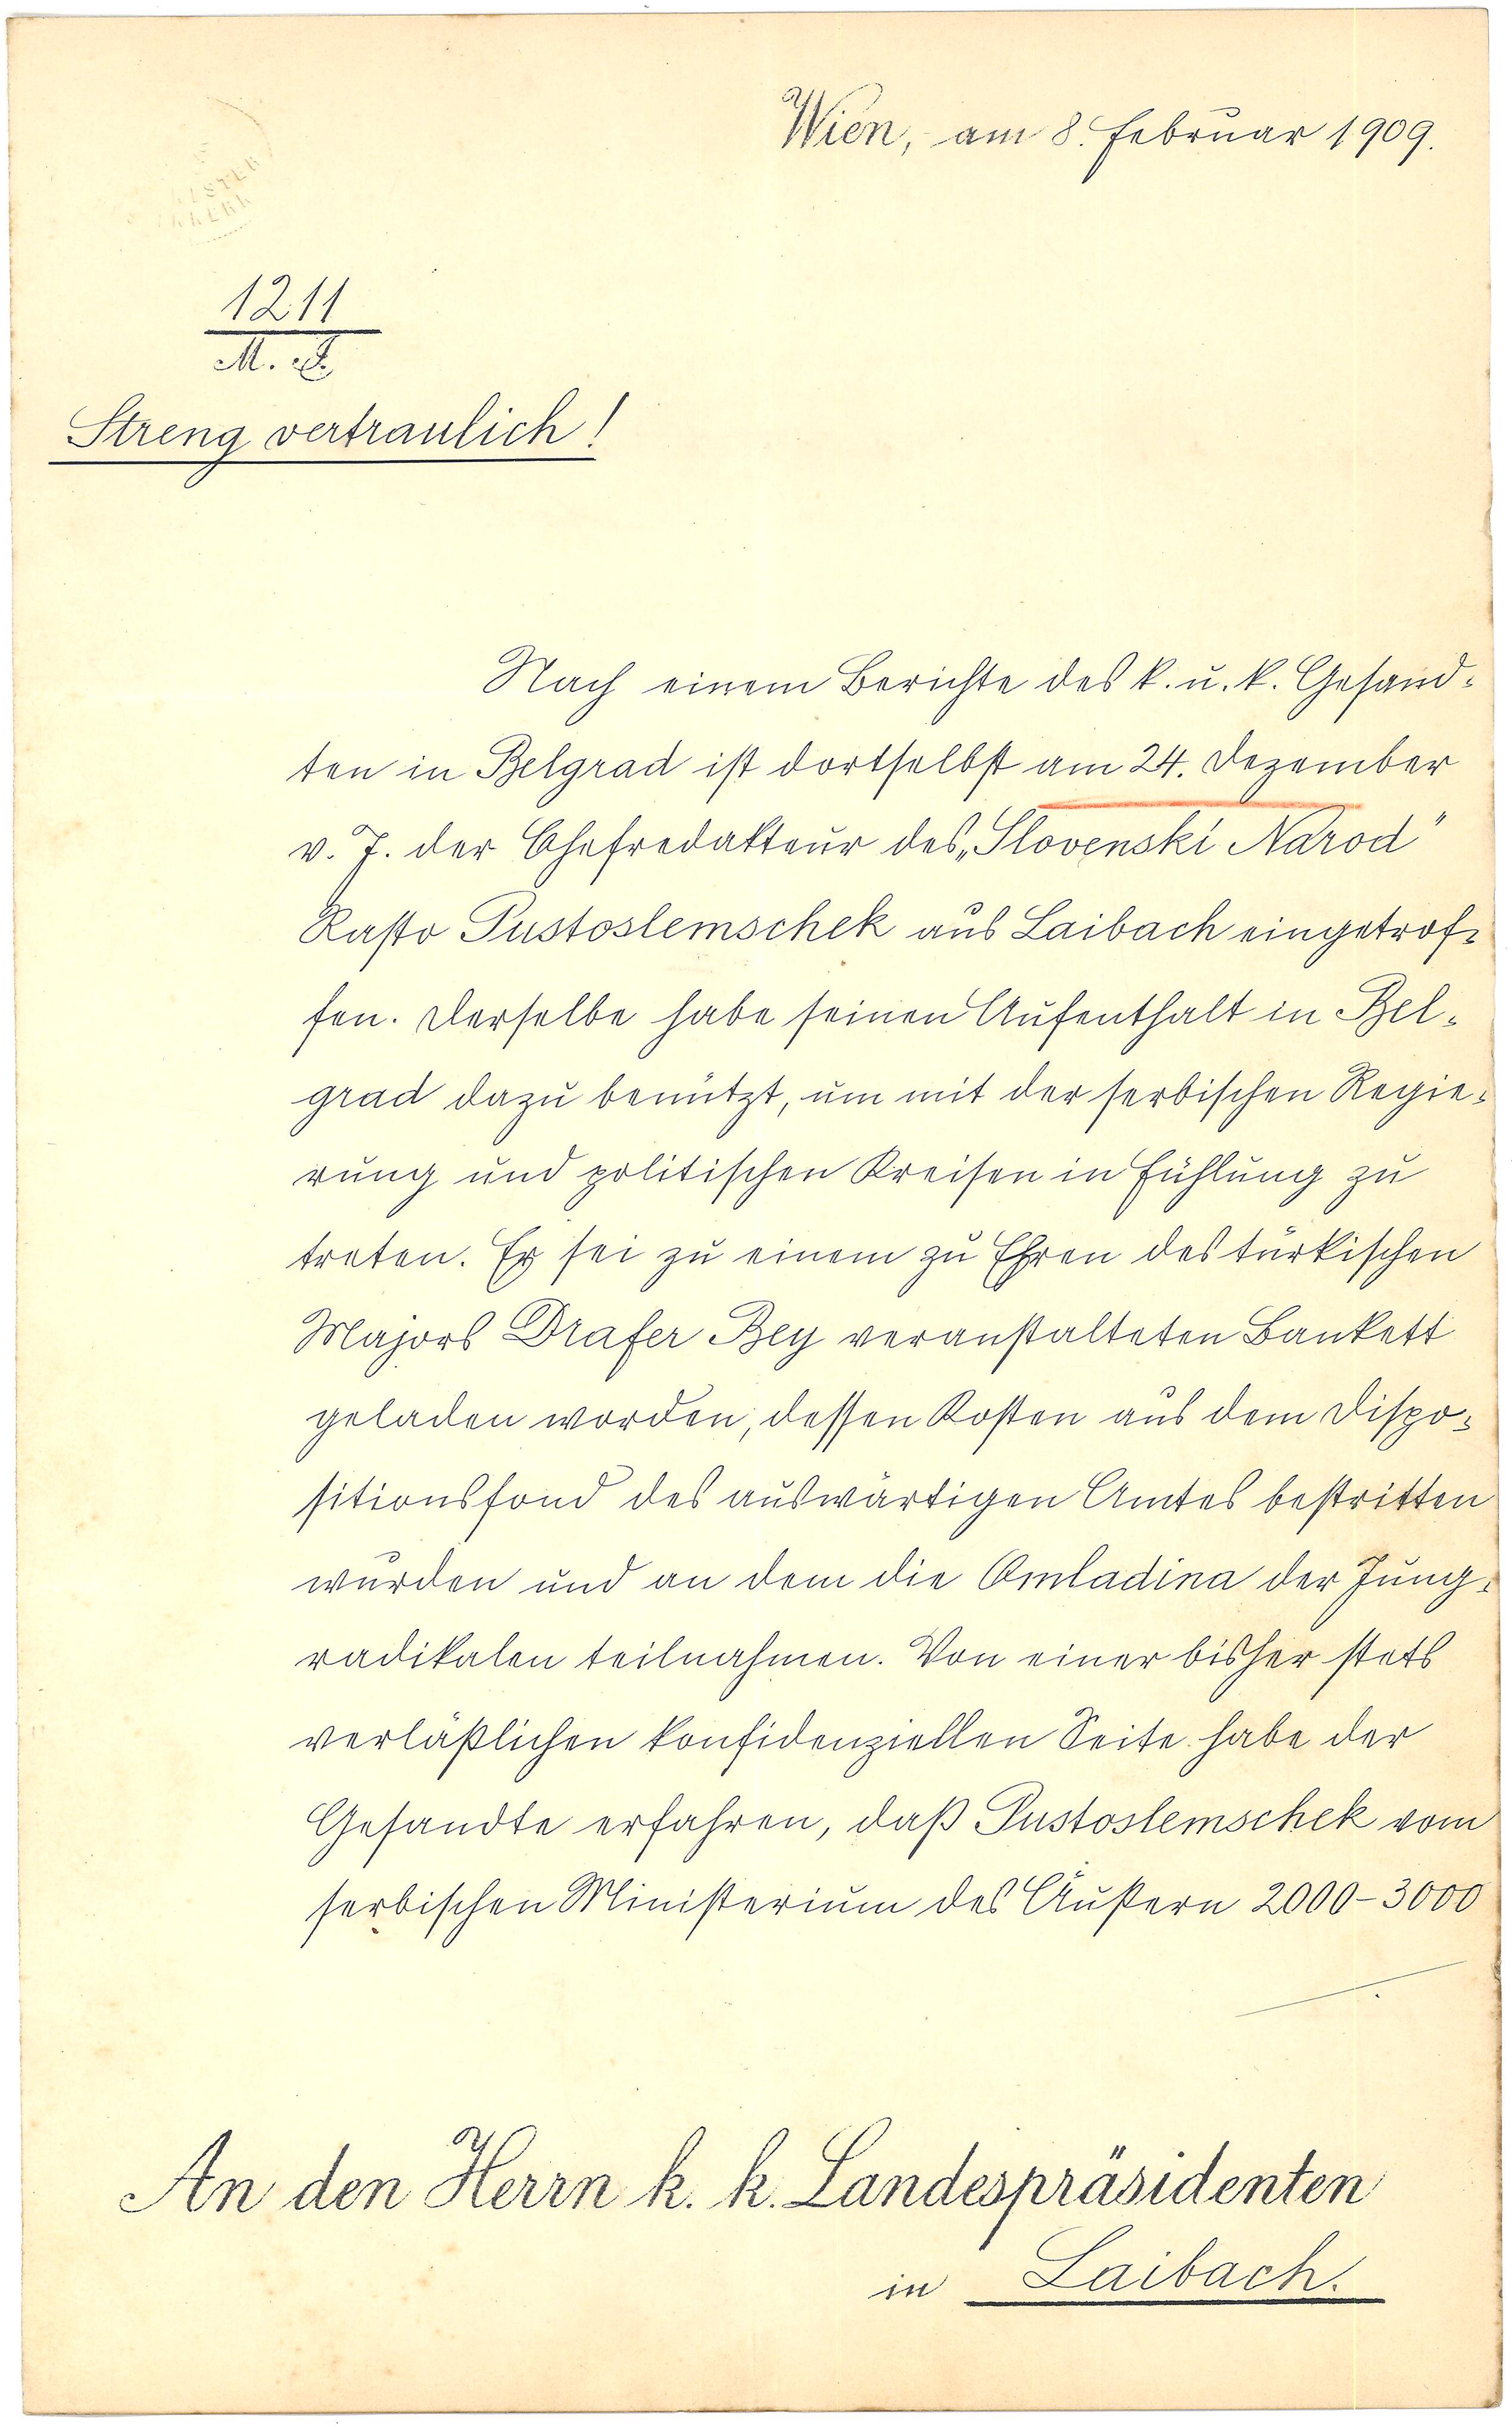 Wien, am 8. Februar 1909.
1211
M. I.
Streng vertraulich!
Nach einem Berichte des k. u. k. Gesand-
ten in Belgrad ist dortselbst am 24. Dezember
v. J. der Chefredakteur des „Slovenski Narod"
Rasto Pustoslemschek aus Laibach eingetrof-
fen. Derselbe habe seinen Aufenthalt in Bel-
grad dazu benützt, um mit der serbischen Regie-
rung und politischen Kreisen in Fühlung zu
treten. Er sei zu einem zu Ehren des türkischen
Majors Drafer Bey veranstalteten Bankett
geladen worden, dessen Kosten aus dem Dispo-
sitionsfond des auswärtigen Amtes bestritten
wurden und an dem die Omladina der Jung-
radikalen teilnahmen. Von einer bisher stets
verläßlichen konfidenziellen Seite habe der
Gesandte erfahren, daß Pustoslemschek vom
serbischen Ministerium des Äußern 2000-3000
An den Herrn k. k. Landespräsidenten
in Laibach.